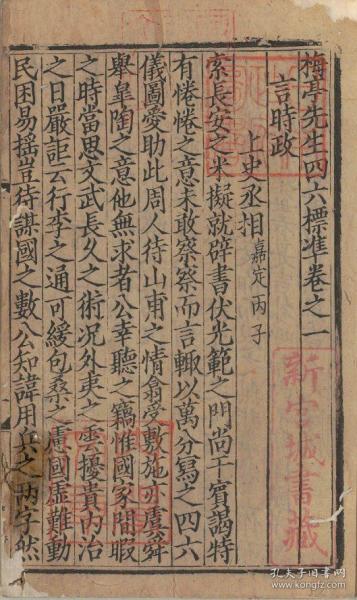 梅亭先生四六標準卷之一
言時政
上史丞相嘉定丙子
索長安之米擬就辟書伏光範之門尚干賓謁特
有惓惓之意未敢察察而言輙以萬分寫之四六
儀圖愛助此周人待山甫之情翕受敷施亦虞舜
舉臯陶之意他無求者公幸聽之竊惟國家閒暇
之時當思文武長久之術况外夷之雲擾貴內治
之日嚴詎云行李之通可緩包桑之慮國虛難動
民困易揺豈待謀國之數公知諱用兵之兩字然
新宮城書藏
孔夫子旧书网
www.kongfz.com